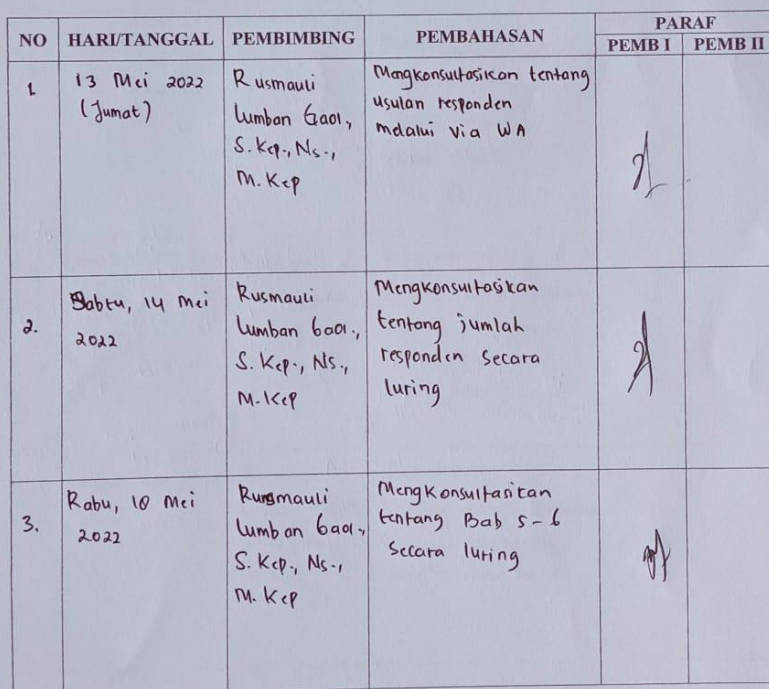 NO HARI/TANGGAL PEMBIMBING PEMBAHASAN PARAF
PEMB I PEMB II
1 13 Mei 2022
(Jumat)
Rusmauli
Lumban Gaol.,
S. Kep., Ns.,
M. Kep
Mengkonsultasikan tentang
usulan responden
melalui via WA
2. Sabtu, 14 Mei
2022
Rusmauli
Lumban Gaol.,
S. Kep., Ns.,
M. Kep
Mengkonsultasikan
tentang jumlah
responden secara
luring
3. Rabu, 18 Mei
2022
Rusmauli
Lumban Gaol.,
S. Kep., Ns.,
M. Kep
Mengkonsultasikan
tentang Bab 5-6
secara luring